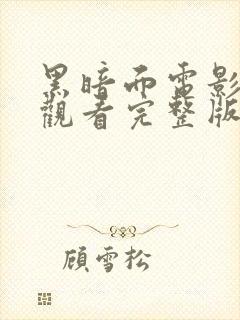 黑暗而電影
觀看完整版
顧雪松